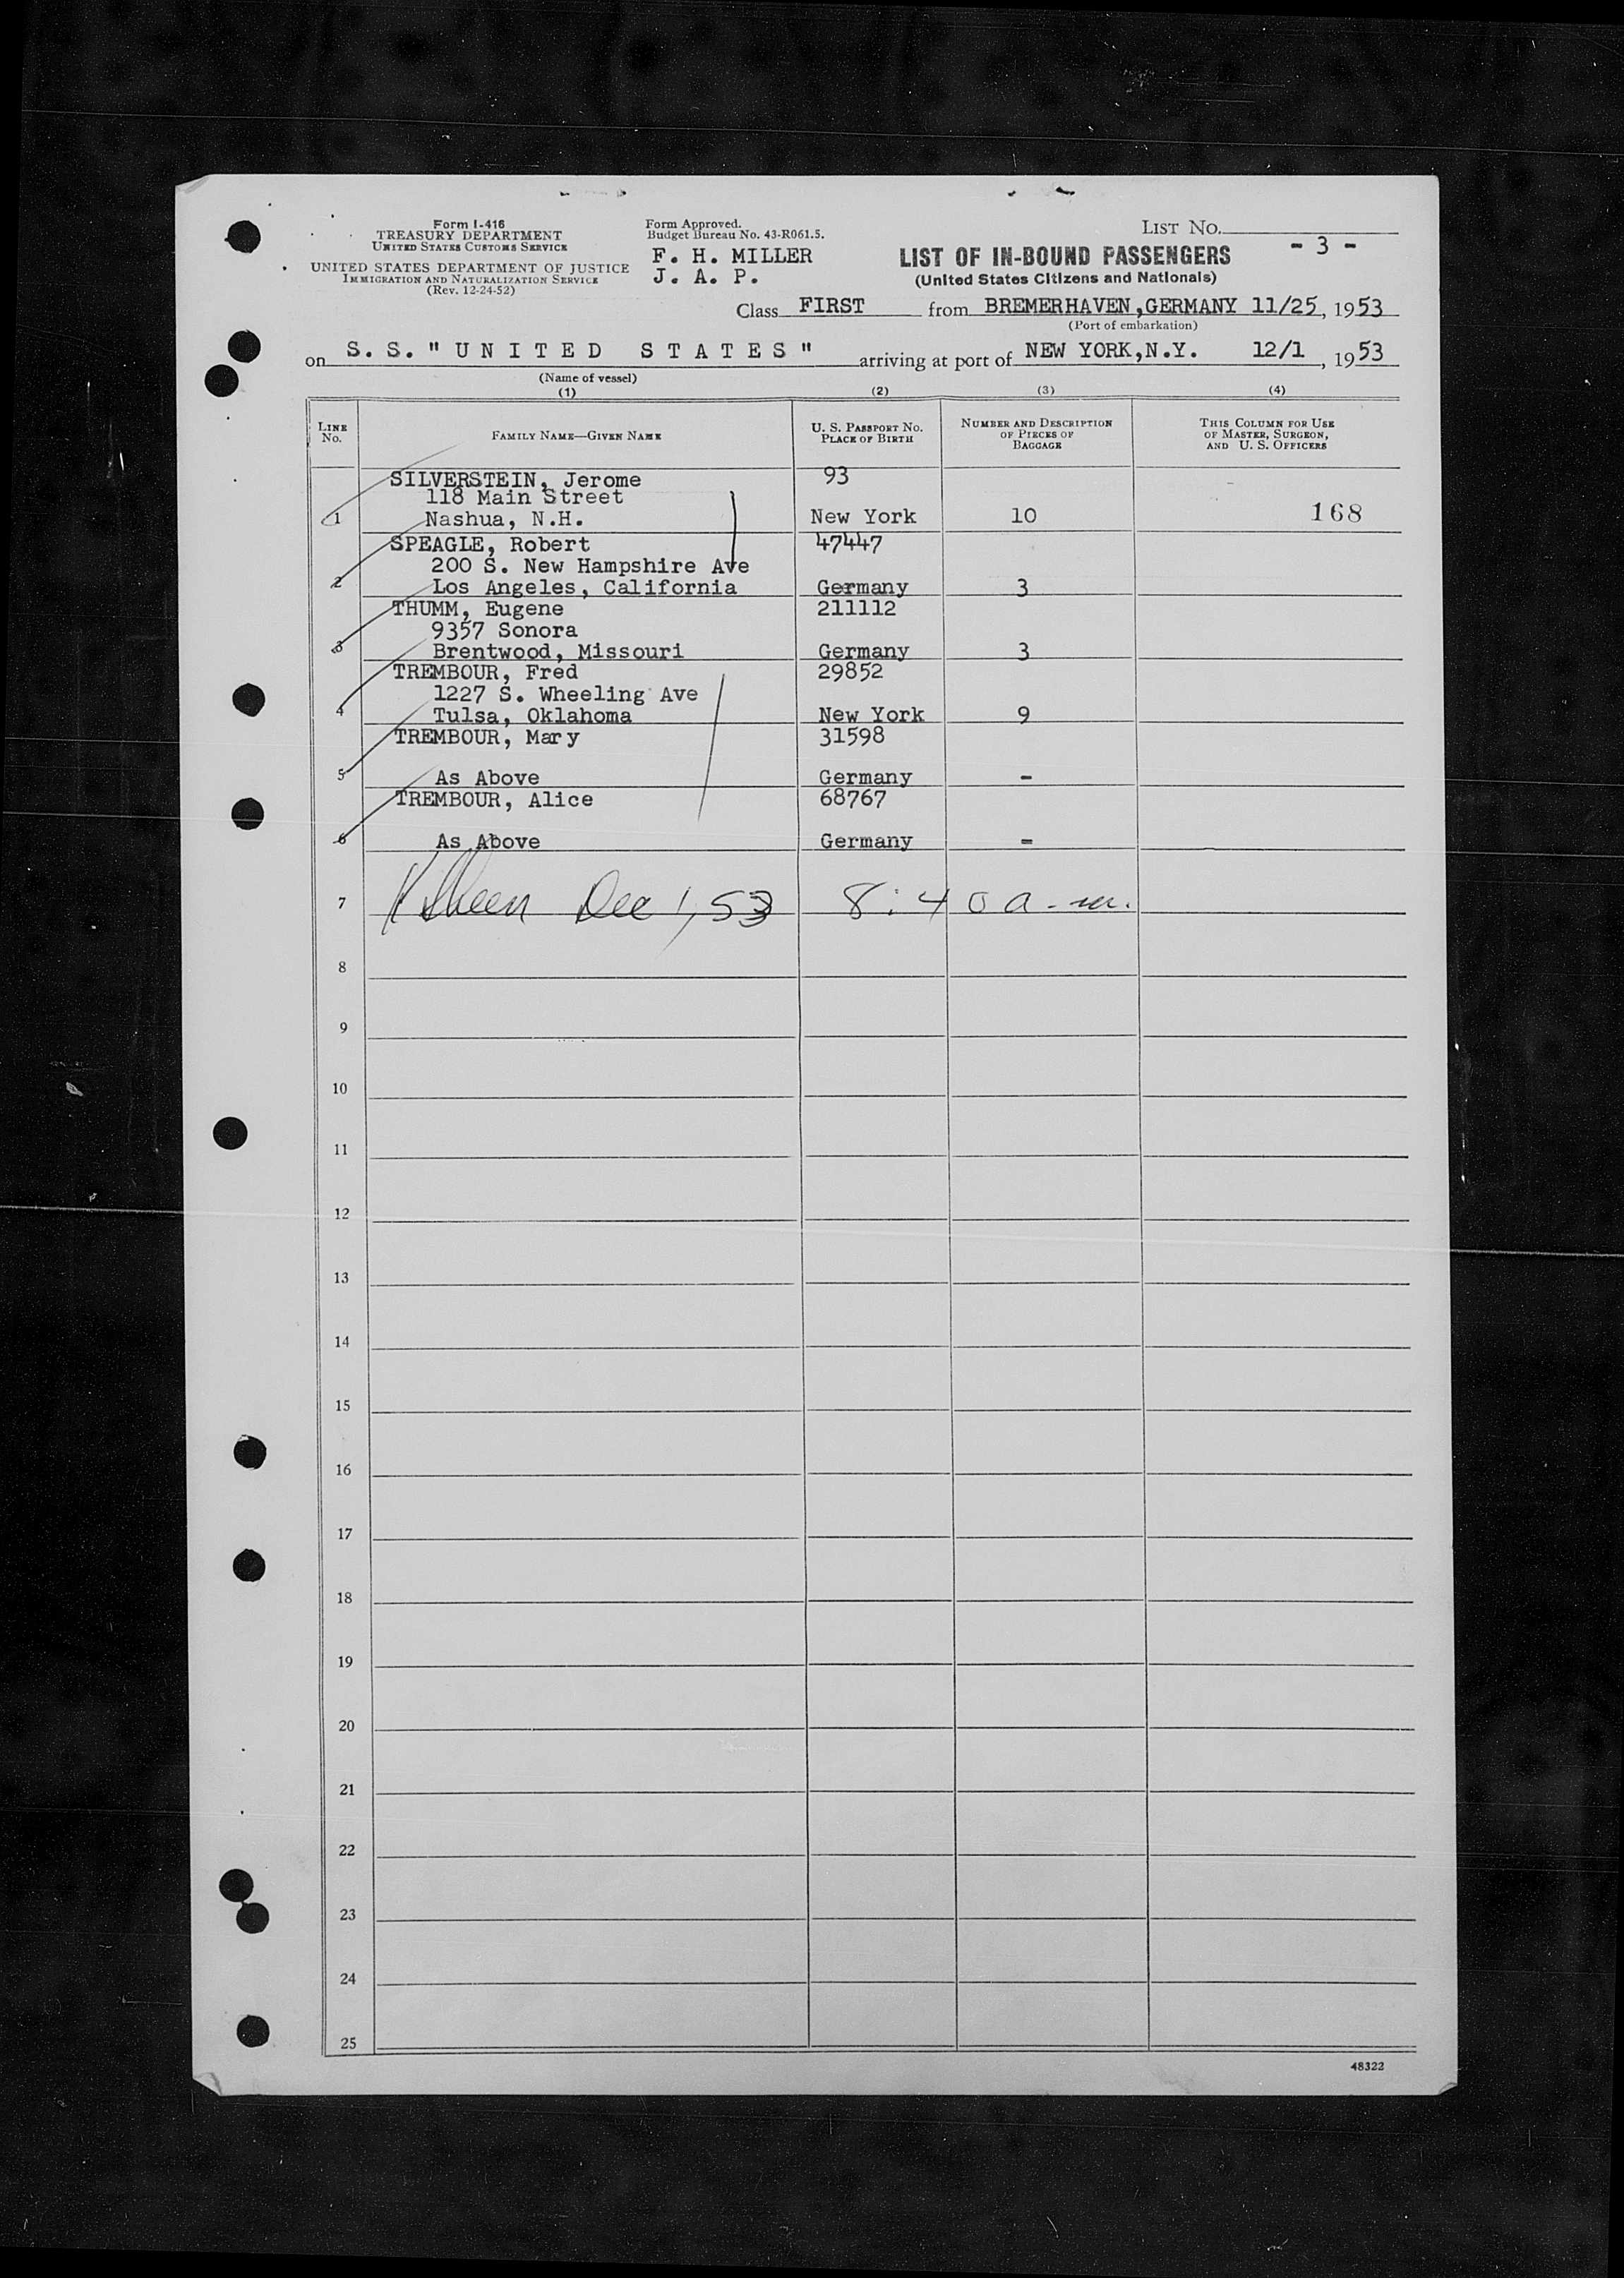 Form I-416
TREASURY DEPARTMENT
UNITED STATES CUSTOMS SERVICE
UNITED STATES DEPARTMENT OF JUSTICE
IMMIGRATION AND NATURALIZATION SERVICE
(Rev. 12-24-52)
Form Approved.
Budget Bureau No. 43-R061.5.
F. H. MILLER
J. A. P.
LIST NO.
- 3 -
LIST OF IN-BOUND PASSENGERS
(United States Citizens and Nationals)
Class FIRST from BREMERHAVEN,GERMANY 11/25, 1953
(Port of embarkation)
on S.S. "UNITED STATES" arriving at port of NEW YORK,N.Y. 12/1, 1953
(Name of vessel)
(1) (2) (3) (4)
LINE NO. FAMILY NAME—GIVEN NAME U. S. PASSPORT NO. PLACE OF BIRTH NUMBER AND DESCRIPTION OF PIECES OF BAGGAGE THIS COLUMN FOR USE OF MASTER, SURGEON, AND U. S. OFFICERS
SILVERSTEIN, Jerome 93
118 Main Street
1 Nashua, N.H. New York 10 168
SPEAGLE, Robert 47447
200 S. New Hampshire Ave
2 Los Angeles, California Germany 3
THUMM, Eugene 211112
9357 Sonora
3 Brentwood, Missouri Germany 3
TREMBOUR, Fred 29852
1227 S. Wheeling Ave
4 Tulsa, Oklahoma New York 9
TREMBOUR, Mary 31598
5 As Above Germany -
TREMBOUR, Alice 68767
6 As Above Germany -
7 Dec 1, 53 8:40 a.m.
8
9
10
11
12
13
14
15
16
17
18
19
20
21
22
23
24
25
48322